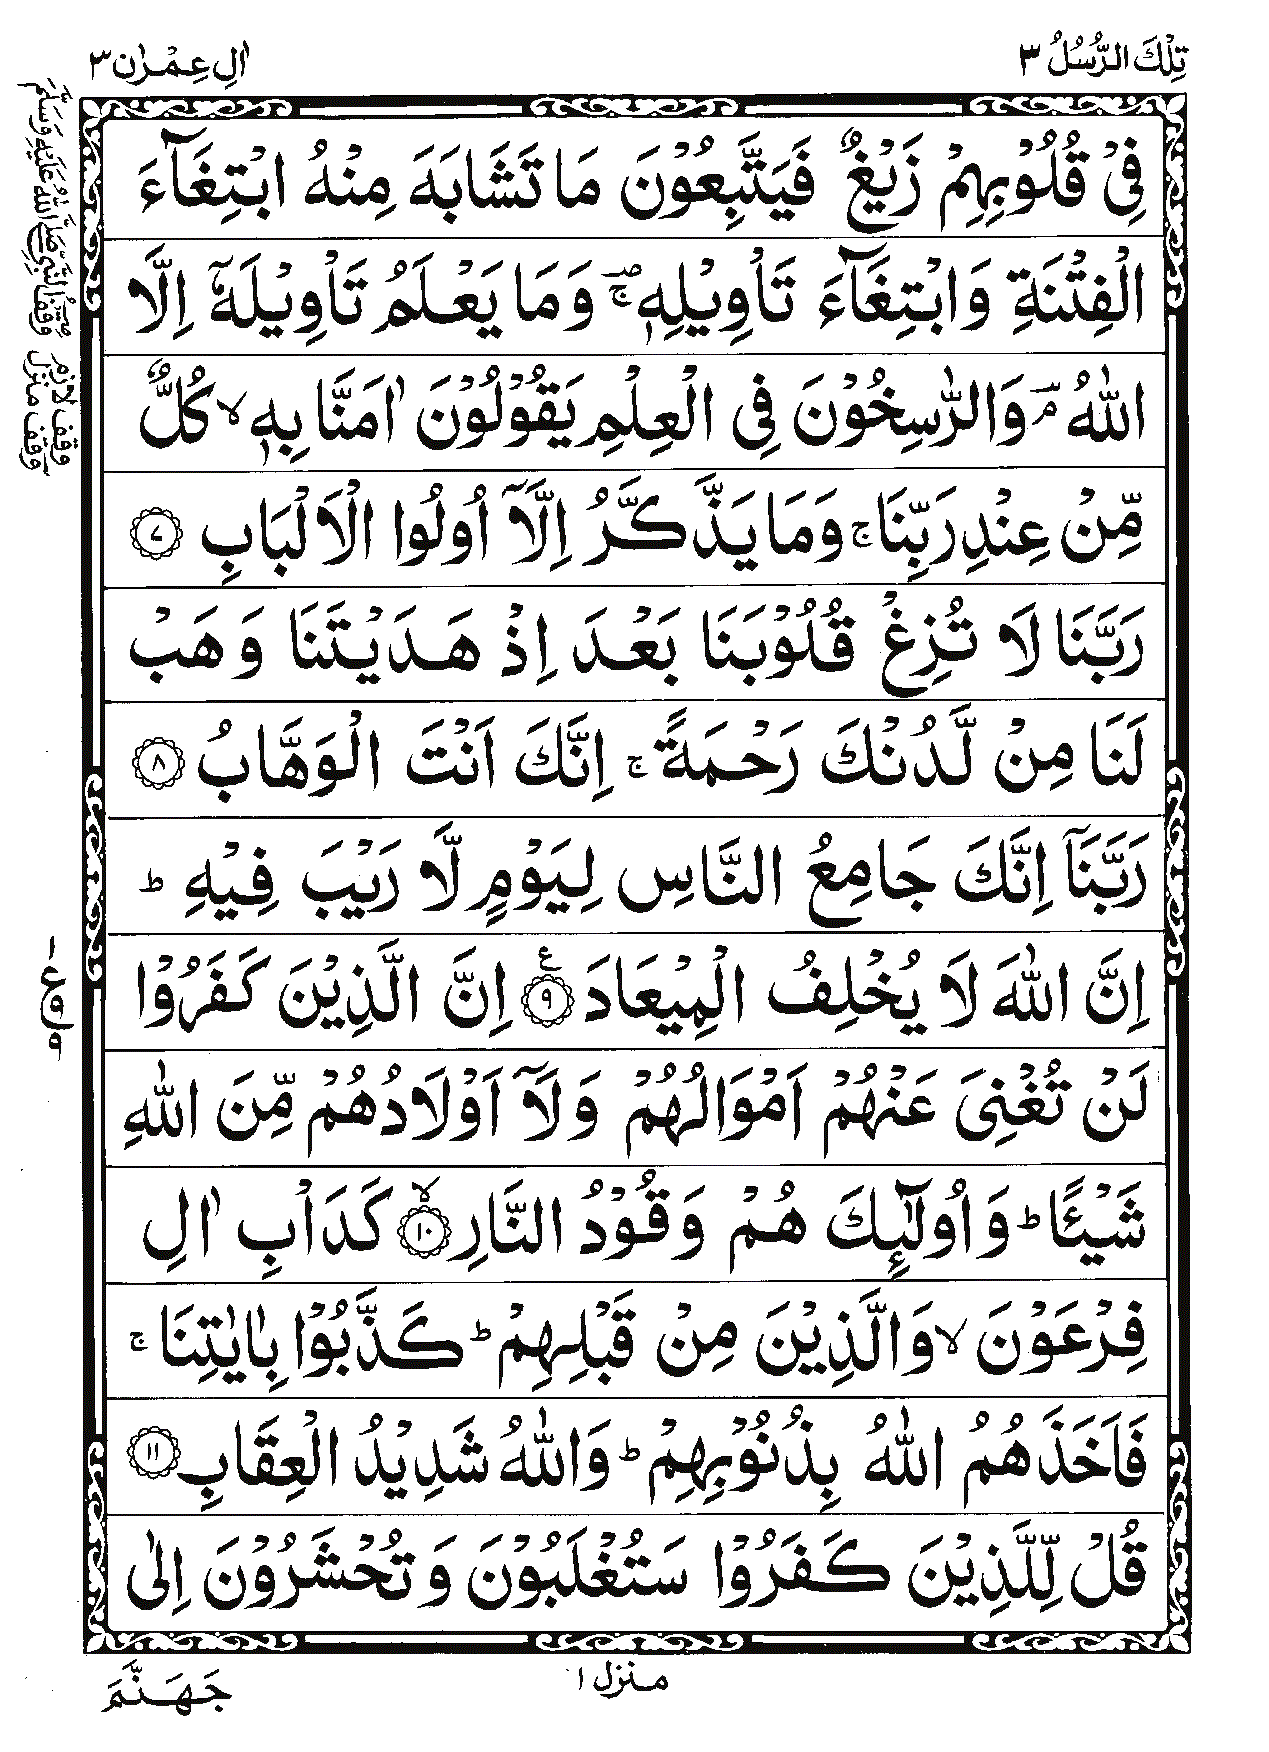 تِلْكَ الرُّسُلُ ٣
اٰلِ عِمْرٰن ٣
فِىْ قُلُوْبِهِمْ زَيْغٌ فَيَتَّبِعُوْنَ مَا تَشَابَهَ مِنْهُ ابْتِغَآءَ
الْفِتْنَةِ وَابْتِغَآءَ تَاْوِيْلِهٖ ۚ وَمَا يَعْلَمُ تَاْوِيْلَهٗٓ اِلَّا
اللّٰهُ ۘ وَالرّٰسِخُوْنَ فِى الْعِلْمِ يَقُوْلُوْنَ اٰمَنَّا بِهٖ ۙ كُلٌّ
مِّنْ عِنْدِ رَبِّنَا ۚ وَمَا يَذَّكَّرُ اِلَّآ اُولُوا الْاَلْبَابِ ﴿٧﴾
رَبَّنَا لَا تُزِغْ قُلُوْبَنَا بَعْدَ اِذْ هَدَيْتَنَا وَهَبْ
لَنَا مِنْ لَّدُنْكَ رَحْمَةً ۚ اِنَّكَ اَنْتَ الْوَهَّابُ ﴿٨﴾
رَبَّنَآ اِنَّكَ جَامِعُ النَّاسِ لِيَوْمٍ لَّا رَيْبَ فِيْهِ ؕ
اِنَّ اللّٰهَ لَا يُخْلِفُ الْمِيْعَادَ ﴿٩﴾ ع اِنَّ الَّذِيْنَ كَفَرُوْا
لَنْ تُغْنِىَ عَنْهُمْ اَمْوَالُهُمْ وَلَآ اَوْلَادُهُمْ مِّنَ اللّٰهِ
شَيْـًٔا ؕ وَاُولٰٓئِكَ هُمْ وَقُوْدُ النَّارِ ﴿١٠﴾ ۙ كَدَاْبِ اٰلِ
فِرْعَوْنَ ۙ وَالَّذِيْنَ مِنْ قَبْلِهِمْ ؕ كَذَّبُوْا بِاٰيٰتِنَا ۚ
فَاَخَذَهُمُ اللّٰهُ بِذُنُوْبِهِمْ ؕ وَاللّٰهُ شَدِيْدُ الْعِقَابِ ﴿١١﴾
قُلْ لِّلَّذِيْنَ كَفَرُوْا سَتُغْلَبُوْنَ وَتُحْشَرُوْنَ اِلٰى
جَهَنَّمَ
منزل ١
وقف النَّبِىِّ صَلَّى اللّٰهُ عَلَيْهِ وَسَلَّمَ
وقف لازم
وقف منزل